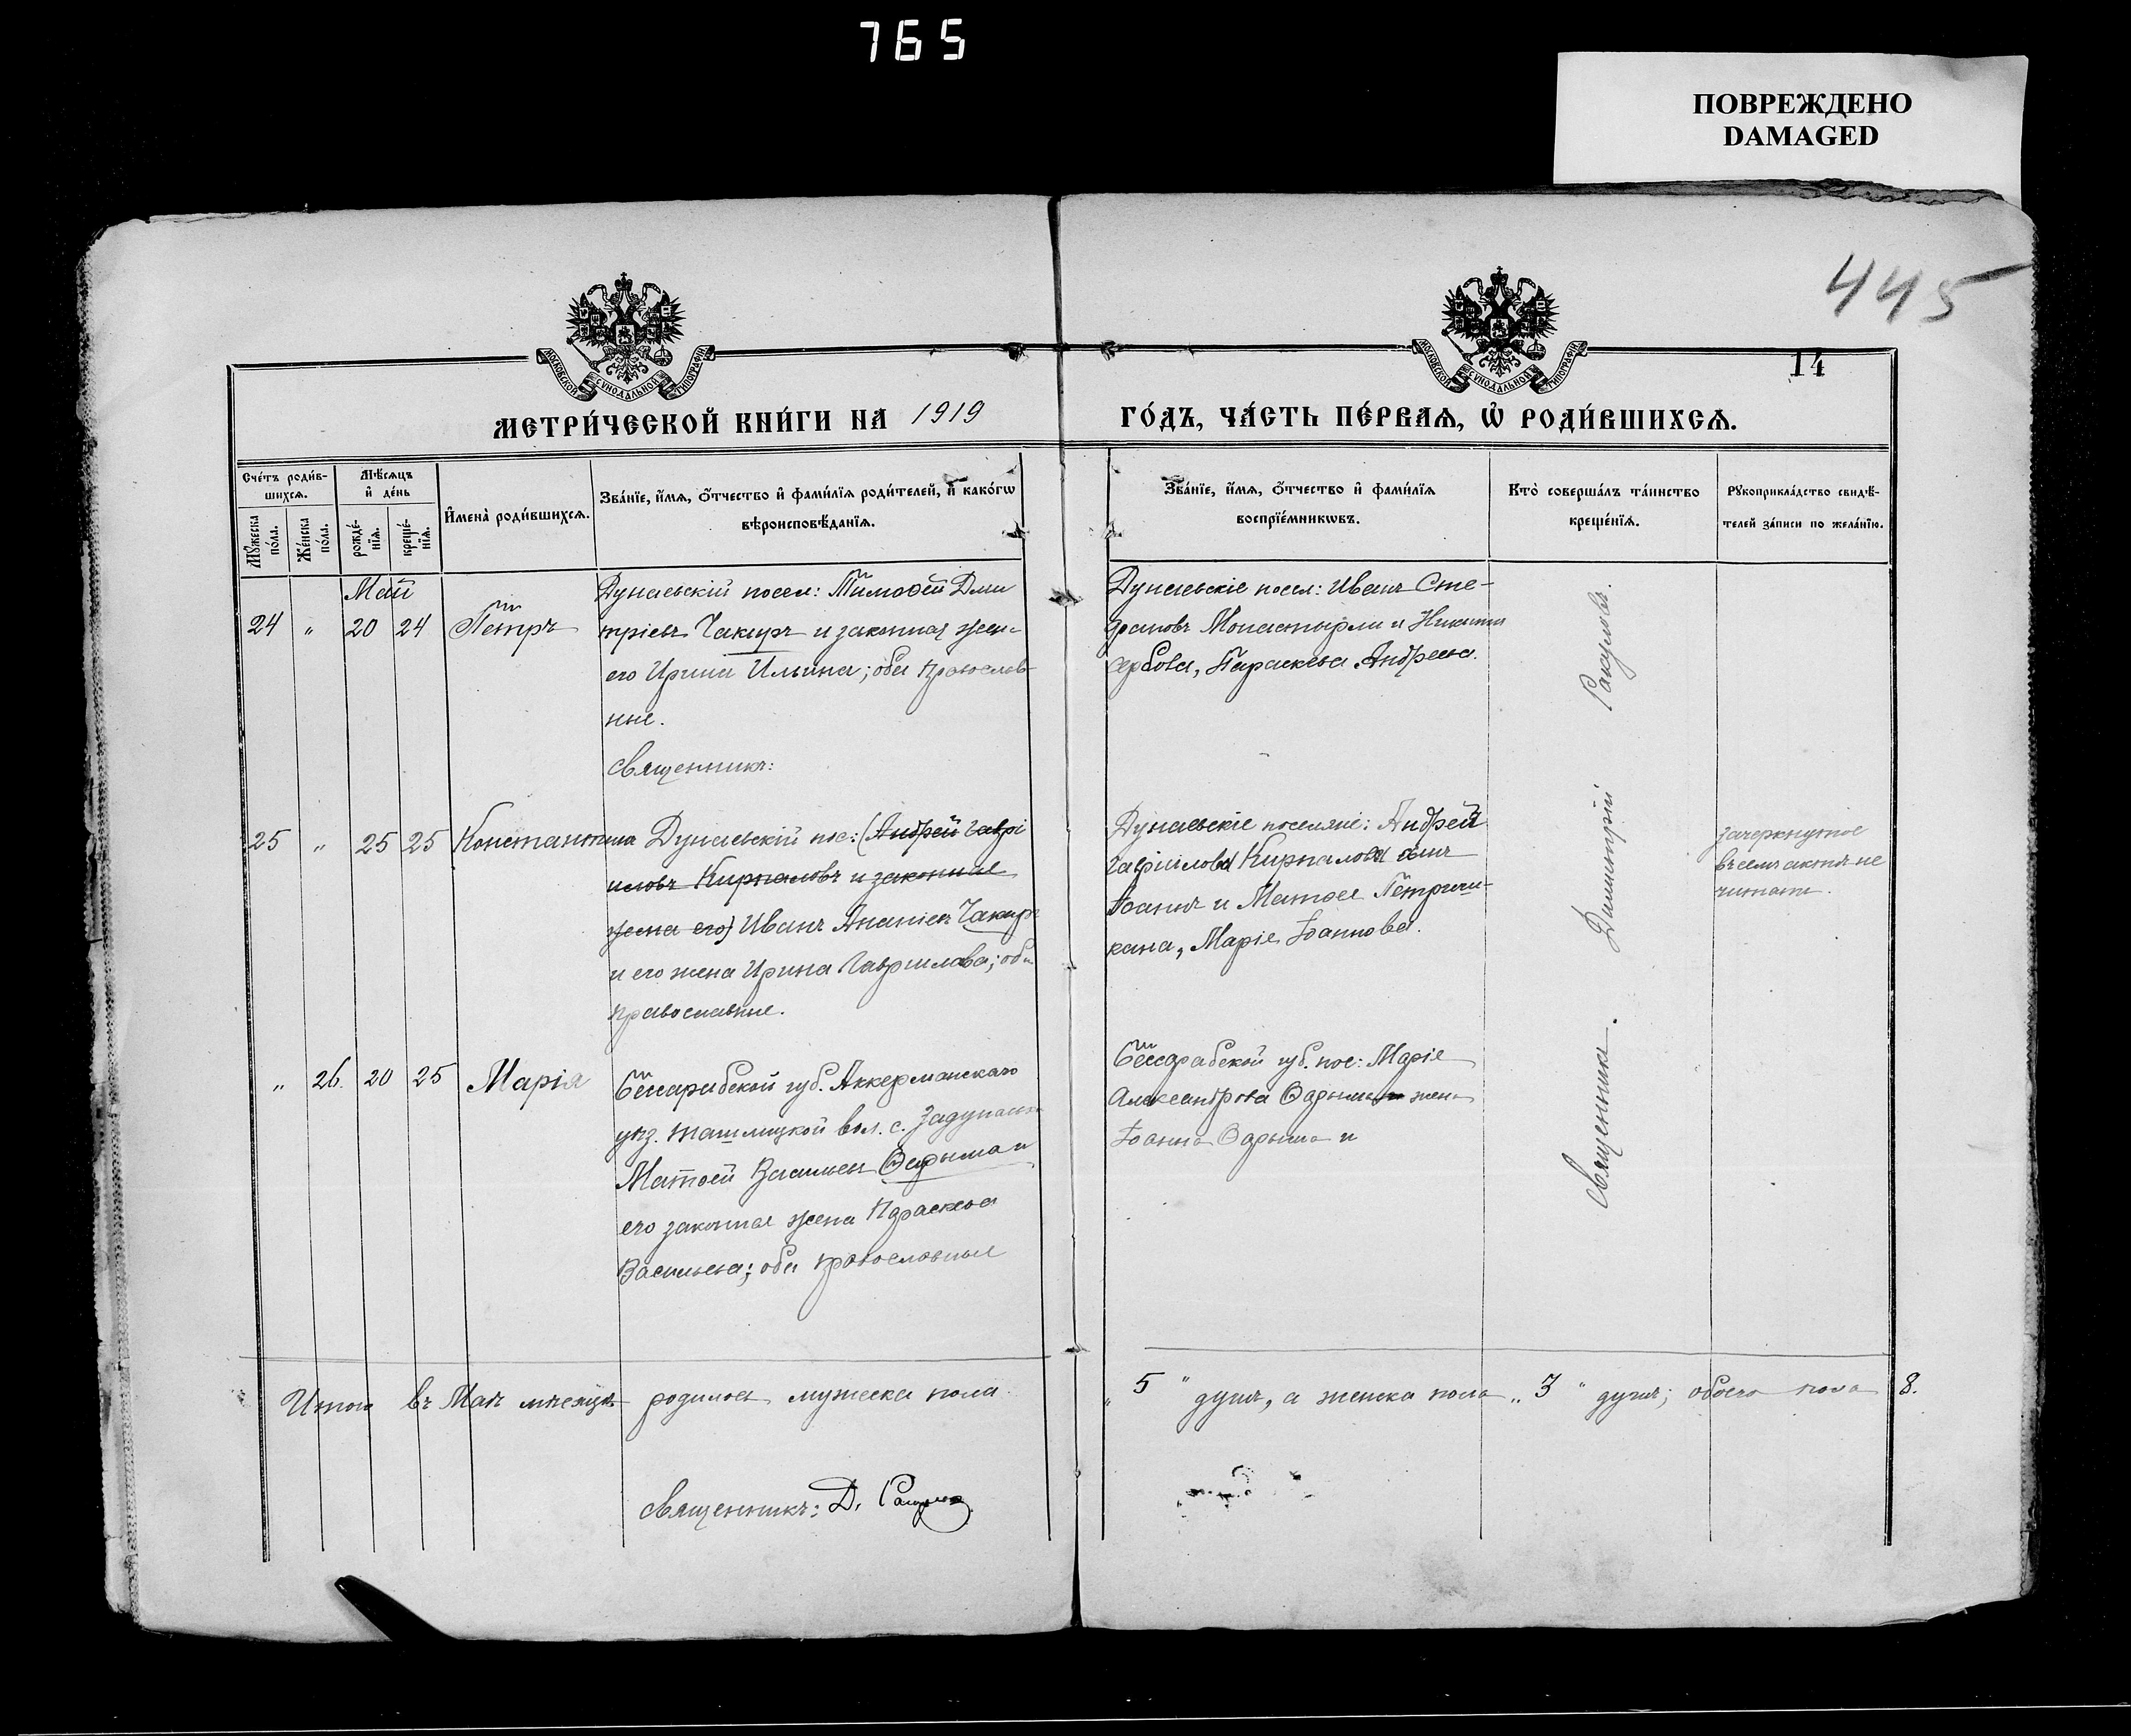 765
ПОВРЕЖДЕНО
DAMAGED
445
14
МОСКОВСКОЙ СѴНОДАЛЬНОЙ ТИПОГРАФІИ
МОСКОВСКОЙ СѴНОДАЛЬНОЙ ТИПОГРАФІИ
МЕТРИ́ЧЕСКОЙ КНИ́ГИ НА 1919
ГО́ДЪ, ЧА́СТЬ ПЕ́РВАѦ, Ѡ҆ РОДИ́ВШИХСѦ.
Сче́тъ роди́в-
шихсѧ.
Мѣ́сѧцъ
и҆ де́нь
Мꙋ́жеска
по́ла.
Же́нска
по́ла.
рожде́-
нїѧ.
креще́-
нїѧ.
И҆мена̀ роди́вшихсѧ.
Зва́нїе, и҆́мѧ, ѻ҆́тчество и҆ фами́лїѧ роди́телей, и҆ како́гѡ
вѣроисповѣ́данїѧ.
Зва́нїе, и҆́мѧ, ѻ҆́тчество и҆ фами́лїѧ
воспрїе́мникѡвъ.
Кто̀ соверша́лъ та́инство
креще́нїѧ.
Рꙋкоприкла́дство свидѣ́-
телей за́писи по жела́нїю.
Май
24 " 20 24 Петръ
Дунаевскій посел: Тимоѳей Дми
тріевъ Чакиръ и законная жен-
его Ирина Ильина; оба православ
ные.
Священникъ:
Дунаевскіе посел: Иванъ Сте-
фановъ Монастырли и Никита
Сербова, Параскева Андреева.
25 " 25 25 Константинъ
Дунаевскій пос: (Андрей Гаврі
иловъ Кирпаловъ и законная
жена его) Иванъ Ананіевъ Чакиръ
и его жена Ирина Гаврилова; оба
православные.
Дунаевскіе поселяне: Андрей
Гавриловъ Кирпаловъ сынъ
Іоаннъ и Матѳея Петричи-
кана, Марія Іоаннова.
зачеркнутое
въ семъ актѣ не
читать.
" 26. 20 25 Марія
Бессарабской губ. Аккерманскаго
уѣз. Ташлыцкой вол. с. Задунаевк
Матѳей Васильевъ Сарыма и
его законная жена Параскева
Васильева; оба православные
Бессарабской губ. пос: Марія
Александрова Сарыма жена
Іоанна Сарыма и
Священникъ. Димитрій Ракуловъ.
Итого въ Маѣ мѣсяцѣ родилось мужеска пола
" 5 " душъ, а женска пола " 3 " душъ; обоего пола 8.
Священникъ: Д.